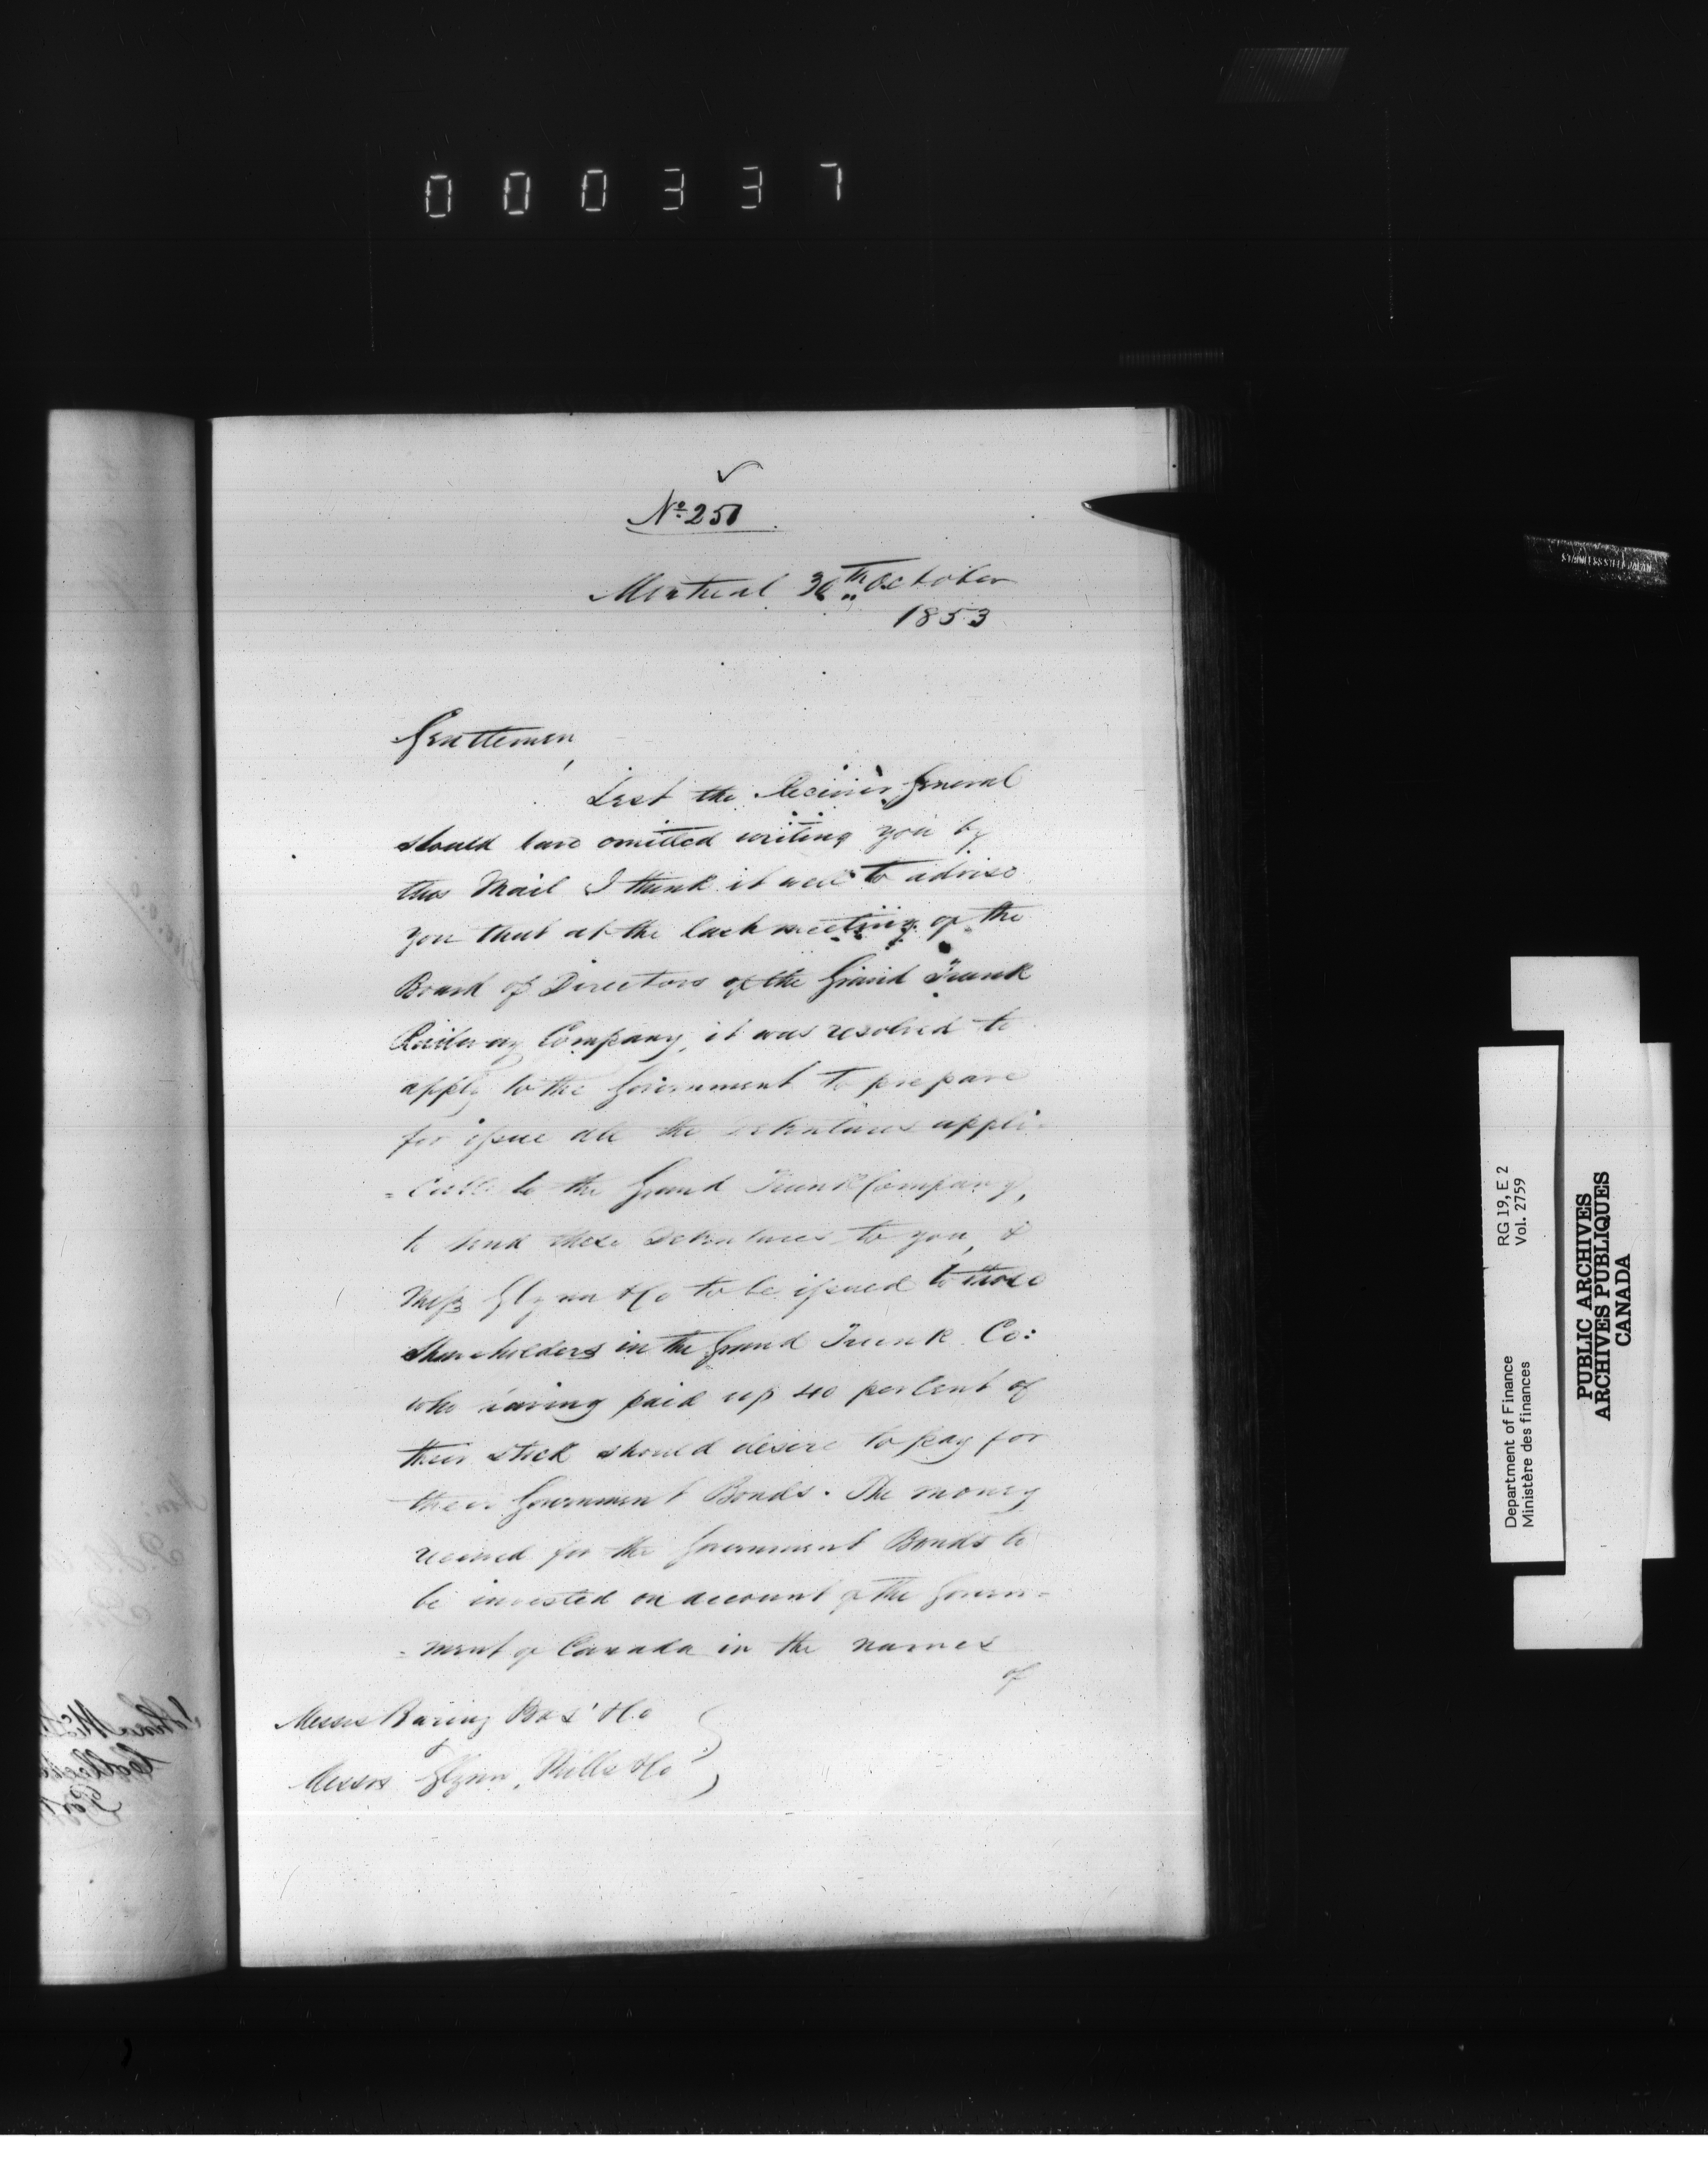 000337
No 251
Montreal 30th October
1853
Gentlemen,
Lest the Receiver General
should have omitted writing you by
this Mail I think it well to advise
you that at the last meeting of the
Board of Directors of the Grand Trunk
Railway Company, it was resolved to
apply to the Government to prepare
for issue all the Debentures appli-
=cable to the Grand Trunk Company,
to send these Debentures to you, &
Messrs Glynn & Co to be issued to those
Shareholders in the Grand Trunk Co:
who having paid up 40 per Cent of
their Stock should desire to pay for
their Government Bonds. The money
received for the Government Bonds to
be invested on account of the Govern=
=ment of Canada in the names
of
Messrs Baring Bros' & Co
&
Messrs Glynn, Mills & Co
STAINLESS STEEL JAPAN
Department of Finance RG 19, E 2
Ministère des finances Vol. 2759
PUBLIC ARCHIVES
ARCHIVES PUBLIQUES
CANADA